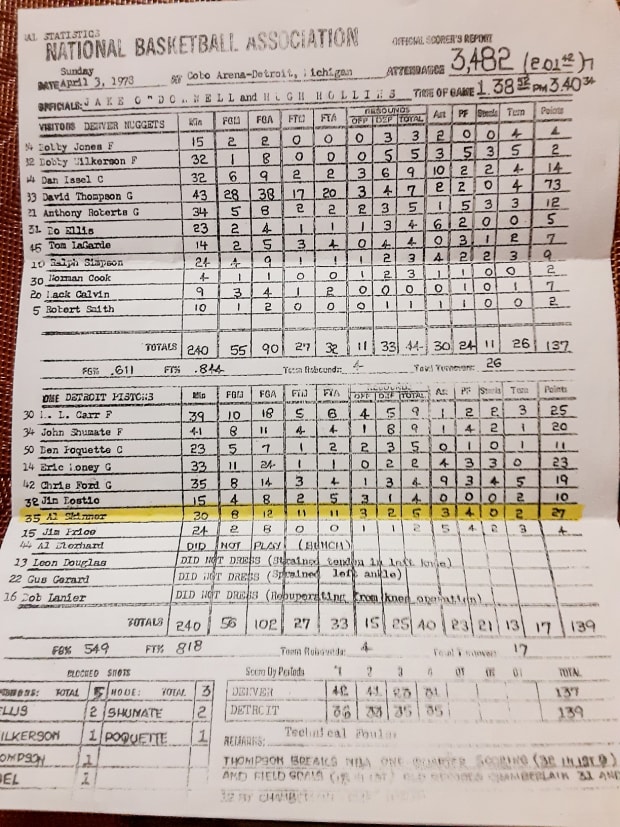 AL STATISTICS
NATIONAL BASKETBALL ASSOCIATION
OFFICIAL SCORER'S REPORT
Sunday
DATE April 3, 1978 Cobo Arena-Detroit, Michigan ATTENDANCE 3,482 (2:01
OFFICIALS: JAKE O'DONNELL and HUGH HOLLINS TIME OF GAME 1.38 PM 3.40
REBOUNDS
VISITORS DENVER NUGGETS Min FGM FGA FTM FTA OFF DEF TOTAL Ast PF Steals Turn Points
Bobby Jones F 15 2 2 0 0 0 3 3 2 0 0 4 4
Bobby Wilkerson F 32 1 8 0 0 0 5 5 3 5 3 5 2
44 Dan Issel C 32 6 9 2 2 3 6 9 10 2 2 4 14
33 David Thompson G 43 28 38 17 20 3 4 7 2 2 0 4 73
21 Anthony Roberts G 34 5 8 2 2 2 3 5 1 5 3 3 12
31 Bo Ellis 23 2 4 1 1 1 3 4 6 2 0 0 5
45 Tom LaGarde 14 2 5 3 4 0 4 4 0 3 1 2 7
10 Ralph Simpson 24 4 9 1 1 1 2 3 4 2 2 3 9
30 Norman Cook 4 1 1 0 0 1 2 3 1 1 0 0 2
20 Mack Calvin 9 3 4 1 2 0 0 0 0 1 0 1 7
5 Robert Smith 10 1 2 0 0 0 1 1 1 1 0 0 2
TOTALS 240 55 90 27 32 11 33 44 30 24 11 26 137
FG% .611 FT% .844 Team Rebounds: 4 Total Turnovers: 26
REBOUNDS
DETROIT PISTONS Min FGM FGA FTM FTA OFF DEF TOTAL Ast PF Steals Turn Points
30 M. L. Carr F 39 10 18 5 6 4 5 9 1 2 2 3 25
34 John Shumate F 41 8 11 4 4 1 8 9 1 4 2 1 20
50 Ben Poquette C 23 5 7 1 2 2 3 5 0 1 0 1 11
14 Eric Money G 33 11 24 1 1 0 2 2 4 3 3 0 23
42 Chris Ford G 35 8 14 3 4 1 3 4 9 3 4 5 19
32 Jim Bostic 15 4 8 2 5 3 1 4 0 0 0 2 10
35 Al Skinner 30 8 12 11 11 3 2 5 3 4 0 2 27
15 Jim Price 24 2 8 0 0 1 1 2 5 4 2 3 4
44 Al Eberhard DID NOT PLAY (BUNCH)
13 Leon Douglas DID NOT DRESS (Strained tendon in left knee)
22 Gus Gerard DID NOT DRESS (Sprained left ankle)
16 Bob Lanier DID NOT DRESS (Recuperating from knee operation)
TOTALS 240 56 102 27 33 15 25 40 23 21 13 17 139
FG% 549 FT% 818 Team Rebounds: 4 Total Turnovers: 17
BLOCKED SHOTS
TOTAL 5 HOME: TOTAL 3
ELLIS 2 SHUMATE 2
WILKERSON 1 POQUETTE 1
THOMPSON 1
SEL 1
Score By Periods 1 2 3 4 OT OT OT TOTAL
DENVER 42 41 23 31 137
DETROIT 36 33 35 35 139
Technical Fouls
REMARKS:
THOMPSON BREAKS NBA ONE QUARTER SCORING (32 IN 1ST Q)
AND FIELD GOALS OLD RECORDS CHAMBERLAIN 31 AND
BY CHAMBERLAIN